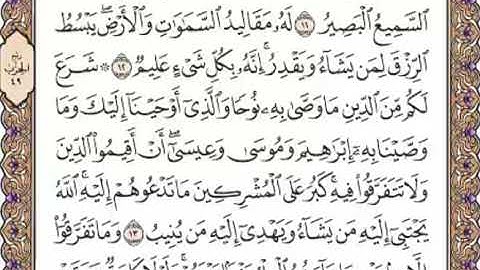 السَّمِيعُ الْبَصِيرُ ١١ لَهُ مَقَالِيدُ السَّمَٰوَٰتِ وَالْأَرْضِ ۖ يَبْسُطُ
الرِّزْقَ لِمَن يَشَاءُ وَيَقْدِرُ ۚ إِنَّهُ بِكُلِّ شَيْءٍ عَلِيمٌ ١٢ ۞ شَرَعَ
لَكُم مِّنَ الدِّينِ مَا وَصَّىٰ بِهِ نُوحًا وَالَّذِي أَوْحَيْنَا إِلَيْكَ وَمَا
وَصَّيْنَا بِهِ إِبْرَاهِيمَ وَمُوسَىٰ وَعِيسَىٰ ۖ أَنْ أَقِيمُوا الدِّينَ
وَلَا تَتَفَرَّقُوا فِيهِ ۚ كَبُرَ عَلَى الْمُشْرِكِينَ مَا تَدْعُوهُمْ إِلَيْهِ ۚ اللَّهُ
يَجْتَبِي إِلَيْهِ مَن يَشَاءُ وَيَهْدِي إِلَيْهِ مَن يُنِيبُ ١٣ وَمَا تَفَرَّقُوا
ربع
الحزب
٤٩